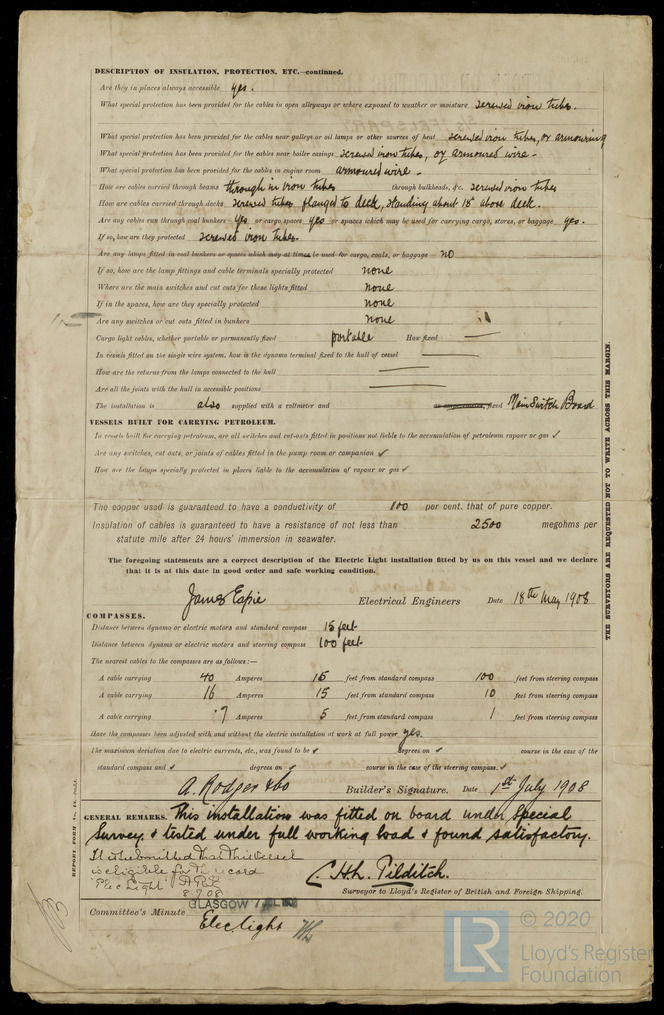 DESCRIPTION OF INSULATION, PROTECTION, ETC.—continued.
Are they in places always accessible yes.
What special protection has been provided for the cables in open alleyways or where exposed to weather or moisture screwed iron tubes.
What special protection has been provided for the cables near galleys or oil lamps or other sources of heat screwed iron tubes, or armouring
What special protection has been provided for the cables near boiler casings screwed iron tubes, or armoured wire.
What special protection has been provided for the cables in engine room armoured wire.
How are cables carried through beams through in iron tubes through bulkheads, &c. screwed iron tubes
How are cables carried through decks screwed tubes flanged to deck, standing about 18" above deck.
Are any cables run through coal bunkers yes or cargo spaces yes or spaces which may be used for carrying cargo, stores, or baggage yes.
If so, how are they protected screwed iron tubes.
Are any lamps fitted in coal bunkers or spaces which may at times be used for cargo, coals, or baggage no
If so, how are the lamp fittings and cable terminals specially protected none
Where are the main switches and cut outs for these lights fitted none
If in the spaces, how are they specially protected none
Are any switches or cut outs fitted in bunkers none
Cargo light cables, whether portable or permanently fixed portable How fixed —
In vessels fitted on the single wire system, how is the dynamo terminal fixed to the hull of vessel —
How are the returns from the lamps connected to the hull —
Are all the joints with the hull in accessible positions —
The installation is also supplied with a voltmeter and an amperemeter, fixed Main Switch Board
VESSELS BUILT FOR CARRYING PETROLEUM.
In vessels built for carrying petroleum, are all switches and cut-outs fitted in positions not liable to the accumulation of petroleum vapour or gas ✓
Are any switches, cut outs, or joints of cables fitted in the pump room or companion ✓
How are the lamps specially protected in places liable to the accumulation of vapour or gas ✓
The copper used is guaranteed to have a conductivity of 100 per cent. that of pure copper.
Insulation of cables is guaranteed to have a resistance of not less than 2500 megohms per
statute mile after 24 hours' immersion in seawater.
The foregoing statements are a correct description of the Electric Light installation fitted by us on this vessel and we declare
that it is at this date in good order and safe working condition.
James Espie Electrical Engineers Date 18th May 1908
COMPASSES.
Distance between dynamo or electric motors and standard compass 15 feet
Distance between dynamo or electric motors and steering compass 100 feet
The nearest cables to the compasses are as follows:—
A cable carrying 40 Amperes 15 feet from standard compass 100 feet from steering compass
A cable carrying 16 Amperes 15 feet from standard compass 10 feet from steering compass
A cable carrying .7 Amperes 5 feet from standard compass 1 feet from steering compass
Have the compasses been adjusted with and without the electric installation at work at full power yes.
The maximum deviation due to electric currents, etc., was found to be ✓ degrees on ✓ course in the case of the
standard compass and ✓ degrees on ✓ course in the case of the steering compass. ✓
A. Rodger & Co Builder's Signature. Date 1st July 1908
GENERAL REMARKS. This installation was fitted on board under Special
Survey, & tested under full working load & found satisfactory.
It is submitted that this vessel
is eligible for the record
"Elec Light"
8.7.08
C. Hh. Pilditch.
Surveyor to Lloyd's Register of British and Foreign Shipping.
GLASGOW 7 JUL
Committee's Minute
Elec. light
REPORT FORM No. 13.
THE SURVEYORS ARE REQUESTED NOT TO WRITE ACROSS THIS MARGIN.
LR
© 2020
Lloyd's Register
Foundation